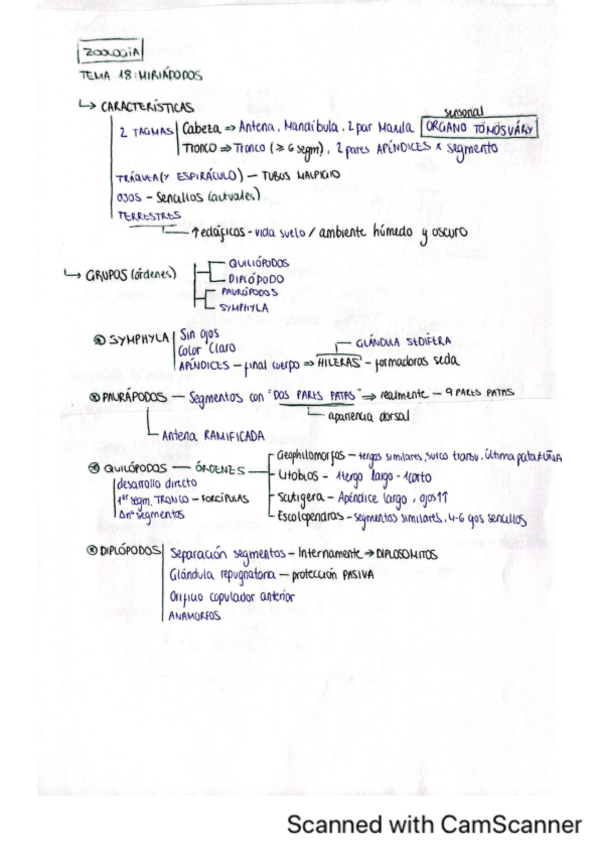 ZOOLOGIA
TEMA 18: MIRIÁPODOS
CARACTERÍSTICAS
sensorial
2 TAGMAS Cabeza ⇒ Antena, Mandíbula, 2 par Maxila ORGANO TÖMÖSVÁRY
Tronco ⇒ Tronco (≥ 6 segm), 2 pares APÉNDICES x segmento
TRÁQUEA (Y ESPIRÁCULO) - TUBOS MALPIGIO
OJOS - Sencillos (actuales)
TERRESTRES
↑ edáficos - vida suelo / ambiente húmedo y oscuro
GRUPOS (órdenes)
QUILIÓPODOS
DIPLÓPODO
PAURÓPODOS
SYMPHYLA
① SYMPHYLA Sin ojos
Color Claro
GLÁNDULA SEDÍFERA
APÉNDICES - final cuerpo ⇒ HILERAS - formadoras seda
② PAURÁPODOS - Segmentos con "DOS PARES PATAS" ⇒ realmente - 9 PARES PATAS
apariencia dorsal
Antena RAMIFICADA
③ QUILÓPODOS - ÓRDENES
desarrollo directo
1er segm. TRONCO - FORCÍPULAS
Δnº segmentos
Geophilomorfos - tergos similares, surco transv, última pata
Litobios - 1 tergo largo - 1 corto
Scutigera - Apéndice largo, ojos ↑↑
Escolopendras - segmentos similares, 4-6 ojos sencillos
④ DIPLÓPODOS Separación segmentos - Internamente → DIPLOSOMITOS
Glándula repugnatoria - protección PASIVA
Orificio copulador anterior
ANAMORFOS
Scanned with CamScanner